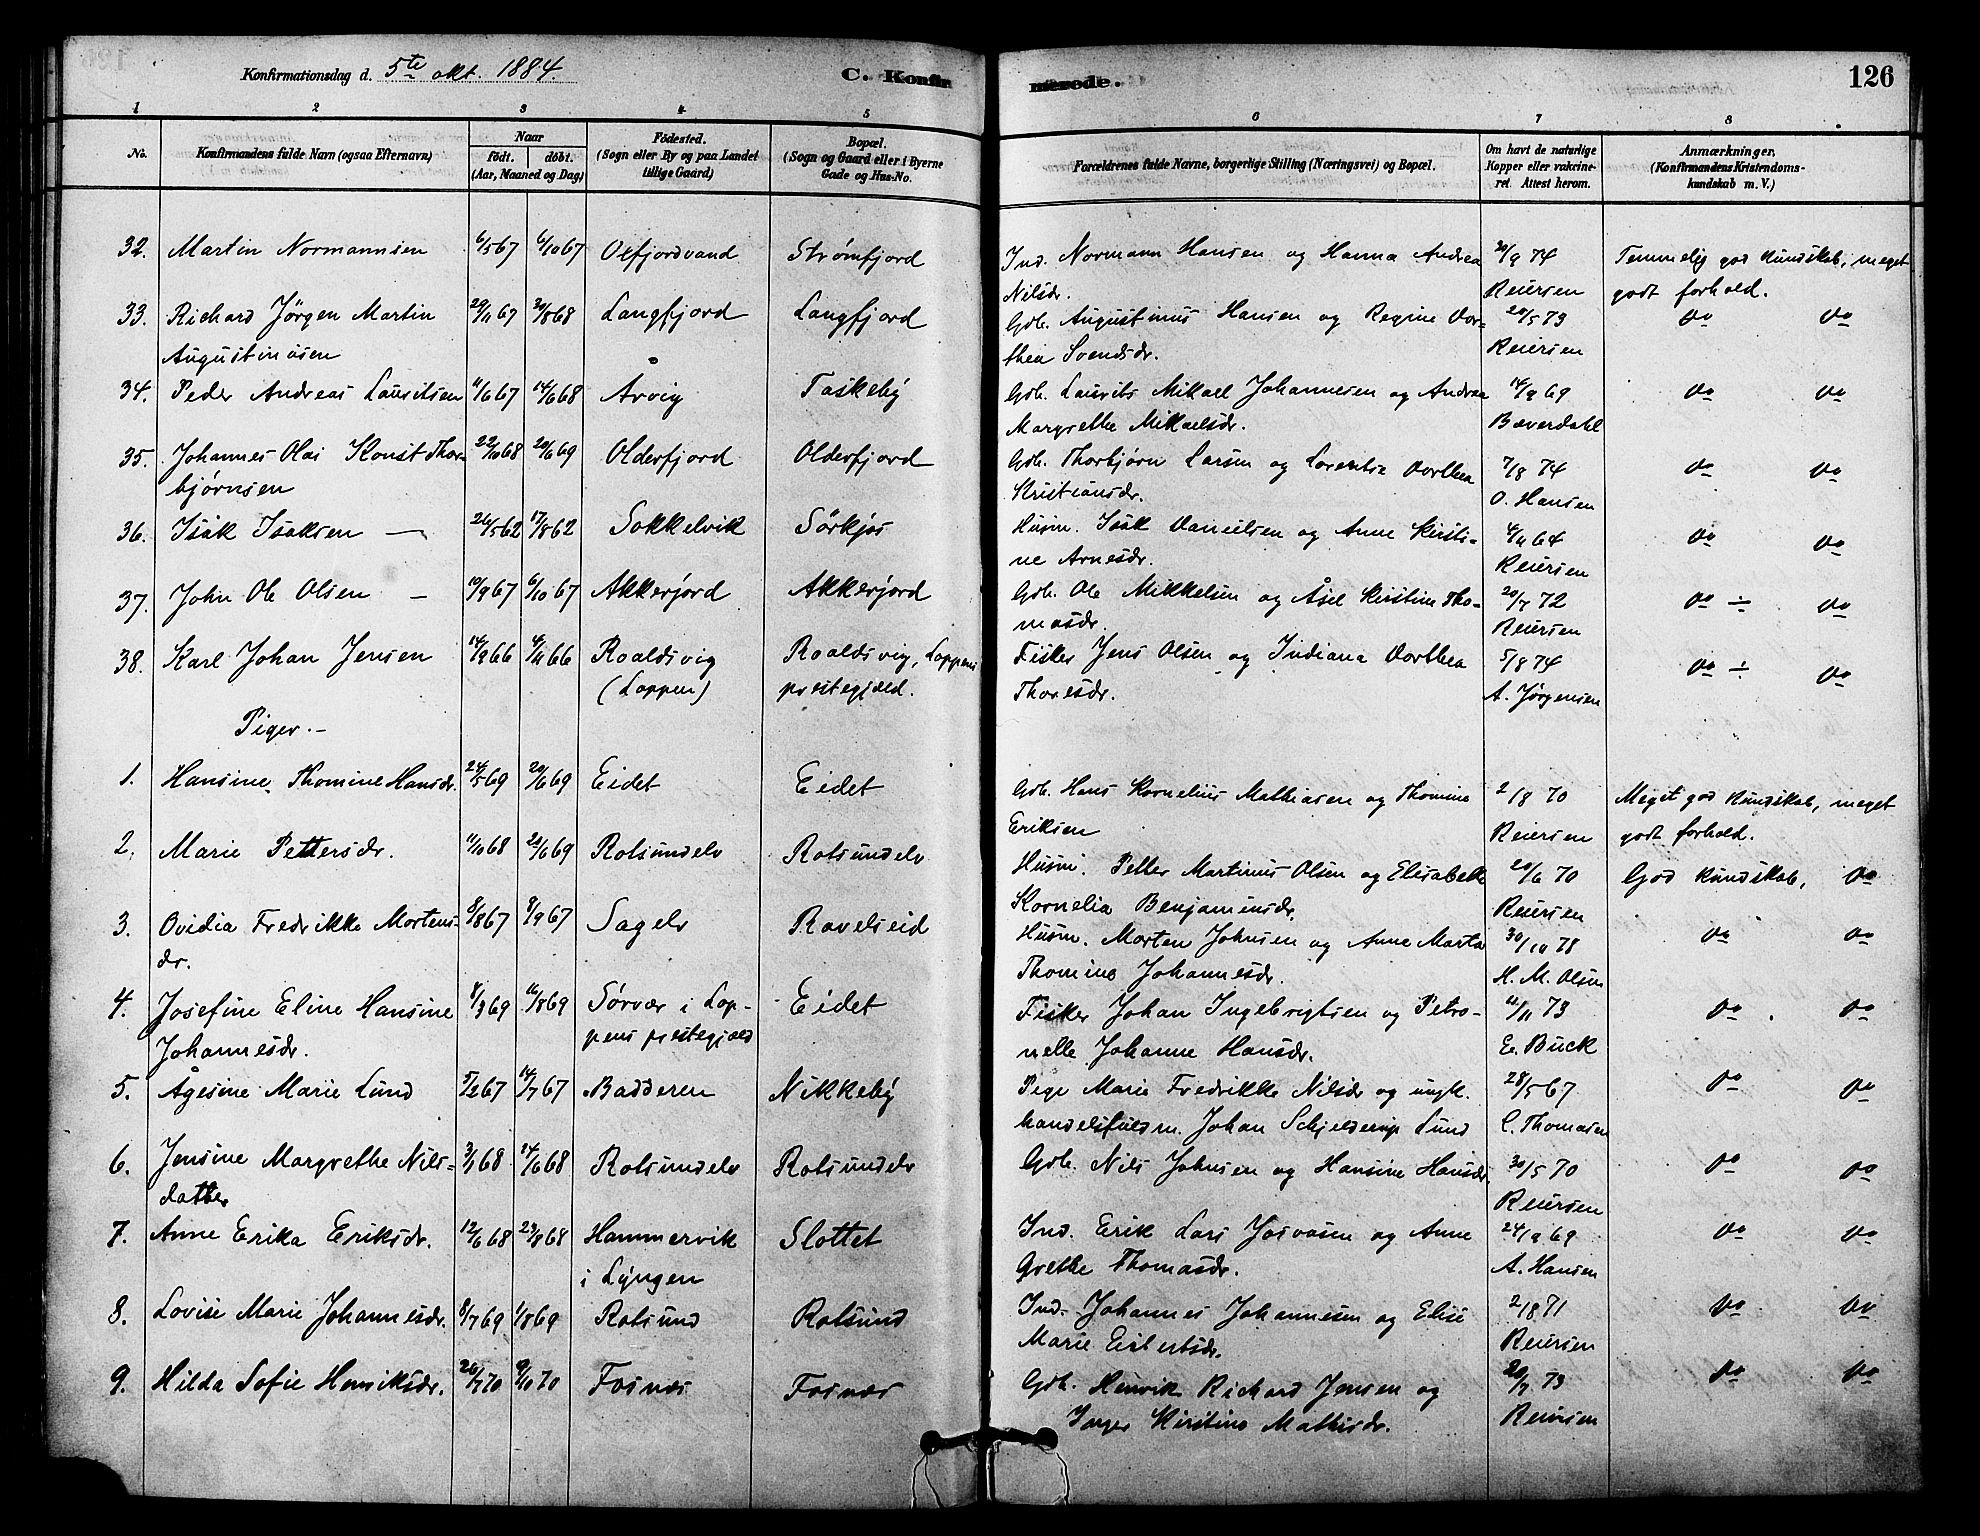 Konfirmationsdag d. 5te okt. 1884.
C. Konfir
merede.
126
1 2 3 4 5 6 7 8
No.
Konfirmandens fulde Navn (ogsaa Efternavn)
Naar
födt. döbt.
(Aar, Maaned og Dag)
Födested.
(Sogn eller By og paa Landet
tillige Gaard)
Bopæl.
(Sogn og Gaard eller i Byerne
Gade og Hus-No.
Forældrenes fulde Navne, borgerlige Stilling (Næringsvei) og Bopæl.
Om havt de naturlige
Kopper eller vakcine-
ret. Attest herom.
Anmærkninger.
(Konfirmandens Kristendoms-
kundskab m. V.)
32. Martin Normannsen 6/5 67 6/10 67 Olfjordvand Strømfjord Ind. Normann Hansen og Hanna Andrea 20/9 74 Temmelig god kundskab, meget
Nilsdr. Reiersen godt forhold.
33. Richard Jörgen Martin 29/11 67 30/8 68 Langfjord Langfjord Gdb. Augustinus Hansen og Regine Dor- 20/5 73 do do
Augustinusen thea Svendsdr. Reiersen
34. Peder Andreas Lauritsen 11/6 67 14/6 68 Årvig Taskeby Gdb. Laurits Mikael Johannesen og Andrea 14/9 69 do do
Margrethe Mikaelsdr. Bæverdahl
35. Johannes Olai Konst Thor- 22/10 68 20/6 69 Olderfjord Olderfjord Gdb. Thorbjørn Larsen og Lorentse Dorthea 7/8 74 do do
bjørnsen Kristiansdr. O. Hansen
36. Isak Isaksen — 26/5 62 17/8 62 Sokkelvik Sörkjos Husm. Isak Danielsen og Anne Kirsti- 4/11 64 do do
ne Arnesdr. Reiersen
37. John Ole Olsen — 19/9 67 6/10 67 Akkerjord Akkerjord Gdb. Ole Mikkelsen og Åsel Kirstine Tho- 20/7 72 do ÷ do
masdr. Reiersen
38. Karl Johan Jensen 14/9 66 4/11 66 Roaldsvig Roaldsvig, Loppens Fisker Jens Olsen og Indiana Dorthea 5/8 74 do ÷ do
(Loppen) prestegjæld. Thoresdr. A. Jörgensen
Piger.-
1. Hansine Thomine Hansdr. 24/5 69 20/6 69 Eidet Eidet Gdb. Hans Kornelius Mathiasen og Thomine 2/8 70 Meget god kundskab, meget
Eriksen Reiersen godt forhold.
2. Marie Pettersdr. 11/10 68 20/6 69 Rotsundelv Rotsundelv Husm. Petter Martinus Olsen og Elisabeth 20/6 70 God kundskab, do
Kornelia Benjaminsdr. Reiersen
3. Ovidia Fredrikke Mortens- 8/8 67 8/9 67 Sagelv Ravelseid Husm. Morten Johnsen og Anne Marta 30/10 78 do do
dr. Thomine Johannesdr. H. M. Olsen
4. Josefine Eline Hansine 8/3 69 16/8 69 Sørvær i Lop- Eidet Fisker Johan Ingebrigtsen og Petro- 4/11 73 do do
Johannesdr. pens prestegjæld nelle Johanne Hansdr. E. Buck
5. Ågesine Marie Lund 5/2 67 14/7 67 Badderen Nikkeby Pige Marie Fredrikke Nilsdr og ungk. 28/5 67 do do
handelsfuldm. Johan Schjelderup Lund C. Thomasen
6. Jensine Margrethe Nils- 3/1 68 14/6 68 Rotsundelv Rotsundelv Gdb. Nils Johnsen og Hansine Hansdr. 30/5 70 do do
datter Reiersen
7. Anne Erika Eriksdr. 12/6 68 23/8 68 Hammervik Slottet Ind. Erik Lars Josvasen og Anne 24/9 69 do do
i Lyngen Grethe Thomasdr. A. Hansen
8. Lovise Marie Johannesdr. 8/7 69 1/8 69 Rotsund Rotsund Ind. Johannes Johannesen og Elise 2/8 71 do do
Marie Eilertsdr. Reiersen
9. Hilda Sofie Henriksdr. 26/7 70 9/10 70 Fosnæs Fosnæs Gdb. Henrik Richard Jensen og 20/7 73 do do
Inger Kirstine Mathisdr. Reiersen